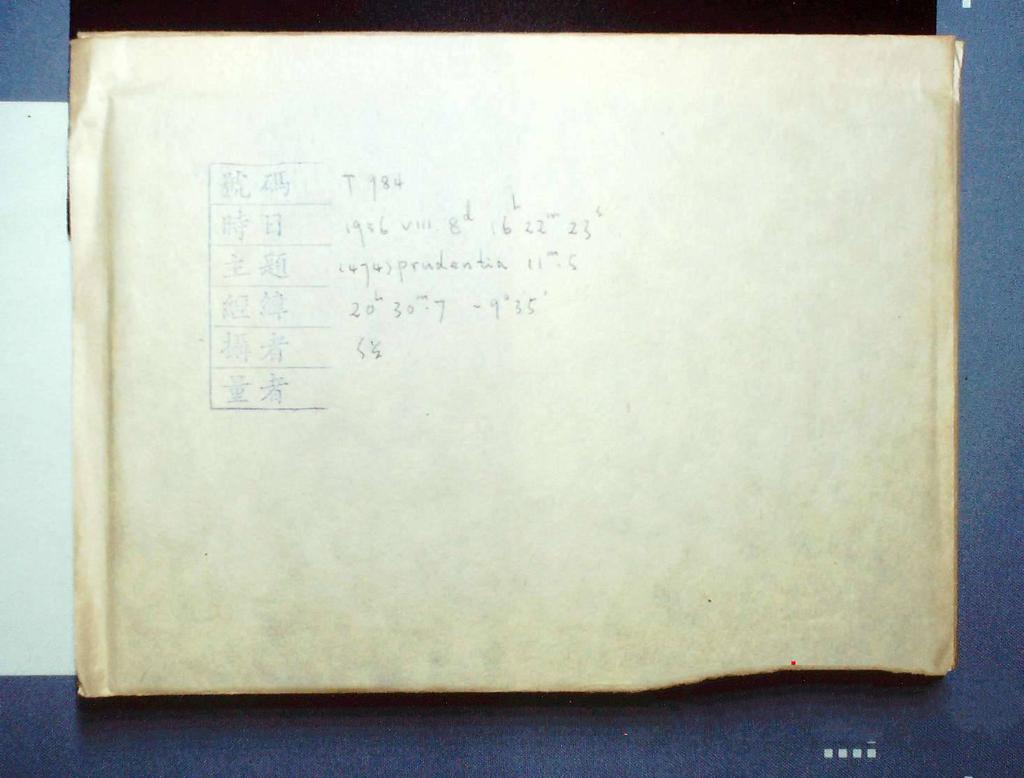 號碼 T 984
時日 1956 VIII 8ᵈ 16ʰ 22ᵐ 23ˢ
主題 (474) prudentia 11ᵐ.5
經緯 20ʰ 30ᵐ.7 -9°35'
攝者
量者